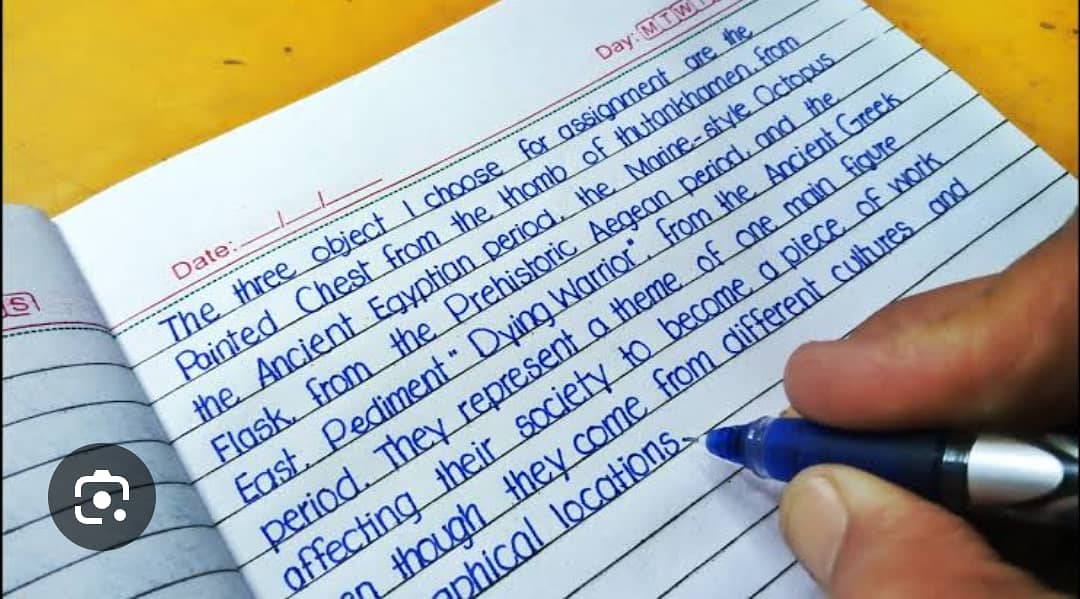 Day: M T W T
Date: __/__/__
S
The three object I choose for assignment are the
Painted Chest from the thomb of thutankhamen, from
the Ancient Egyptian period, the Marine-style Octopus
Flask, from the Prehistoric Aegean period, and the
East, Pediment "Dying Warrior", from the Ancient Greek
period. They represent a theme of one main figure
affecting their society to become a piece of work
en though they come from different cultures and
aphical locations.